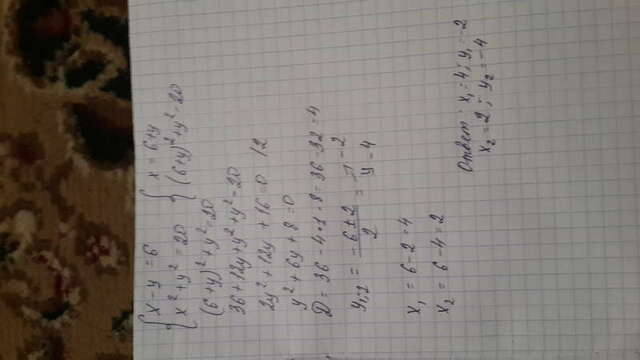 { x - y = 6 { x = 6+y
{ x² + y² = 20 { (6+y)² + y² = 20
(6+y)² + y² = 20
36 + 12y + y² + y² = 20
2y² + 12y + 16 = 0 | : 2
y² + 6y + 8 = 0
D = 36 - 4·1·8 = 36 - 32 = 4
y₁;₂ = (-6 ± 2)/2 = [ -2
y -4
x₁ = 6 - 2 = 4
x₂ = 6 - 4 = 2
Ответ: x₁ = 4; y₁ = -2
x₂ = 2; y₂ = -4